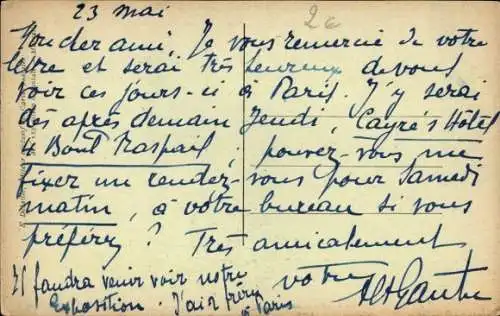 23 mai
2e
Mon cher ami, Je vous remercie de votre
lettre et serai très heureux de vous
voir ces jours-ci à Paris. J'y serai
dès après demain Jeudi, Cayré's Hôtel
4 Boul Raspail ; pouvez-vous me
fixer un rendez-vous pour Samedi
matin, à votre bureau si vous
préférez ? Très amicalement
votre
Il faudra venir voir notre
Exposition. J'ai
à Paris